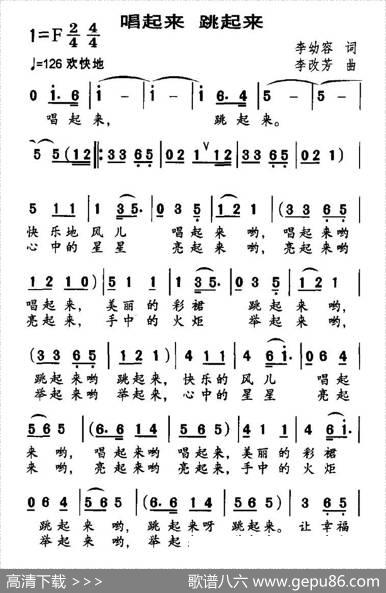 唱起来 跳起来
1=F 2/4 4/4
李幼容 词
♩=126 欢快地
李改芳 曲
0 i· 6 | i - | i - i | i 6·4 | 5 - | 5 -
唱起来， 跳起来。
5 5 (1 2 |: 3 3 6 5 | 0 2 1 1 2 | 3 3 6 5 | 0 2 1) |
5 1 1 | 1 3 5· | 0 3 5 | 1 2 1 | (3 3 6 5 |
快乐地 风儿 唱起来哟， 唱起来哟
心中的 星星 亮起来哟， 亮起来哟
1 2 1 0) | 5 1 1 | 1 3 5· | 0 3 5 | 1 2 1 |
唱起来， 美丽的 彩裙 跳起来哟，
亮起来， 手中的 火炬 举起来哟，
(3 3 6 5 | 1 2 1) | 4 1 1 | 4 6 i· | 0 6 4 |
跳起来哟 跳起来， 快乐的 风儿 唱起
举起来哟 举起来， 心中的 星星 亮起
5 6 5 | (6· 6 1 4 | 5 6 5) | 4 1 1 | 4 6 i· |
来哟， 唱起来哟 唱起来， 美丽的 彩裙
来哟， 亮起来哟 亮起来， 手中的 火炬
0 6 4 | 5 6 5 | (6· 6 1 4 | 5 6 5) | 3 4 5 |
跳起来哟， 跳起来呀 跳起来。 让幸福
举起来哟， 举起
高清下载 >>>
歌谱八六 www.gepu86.com